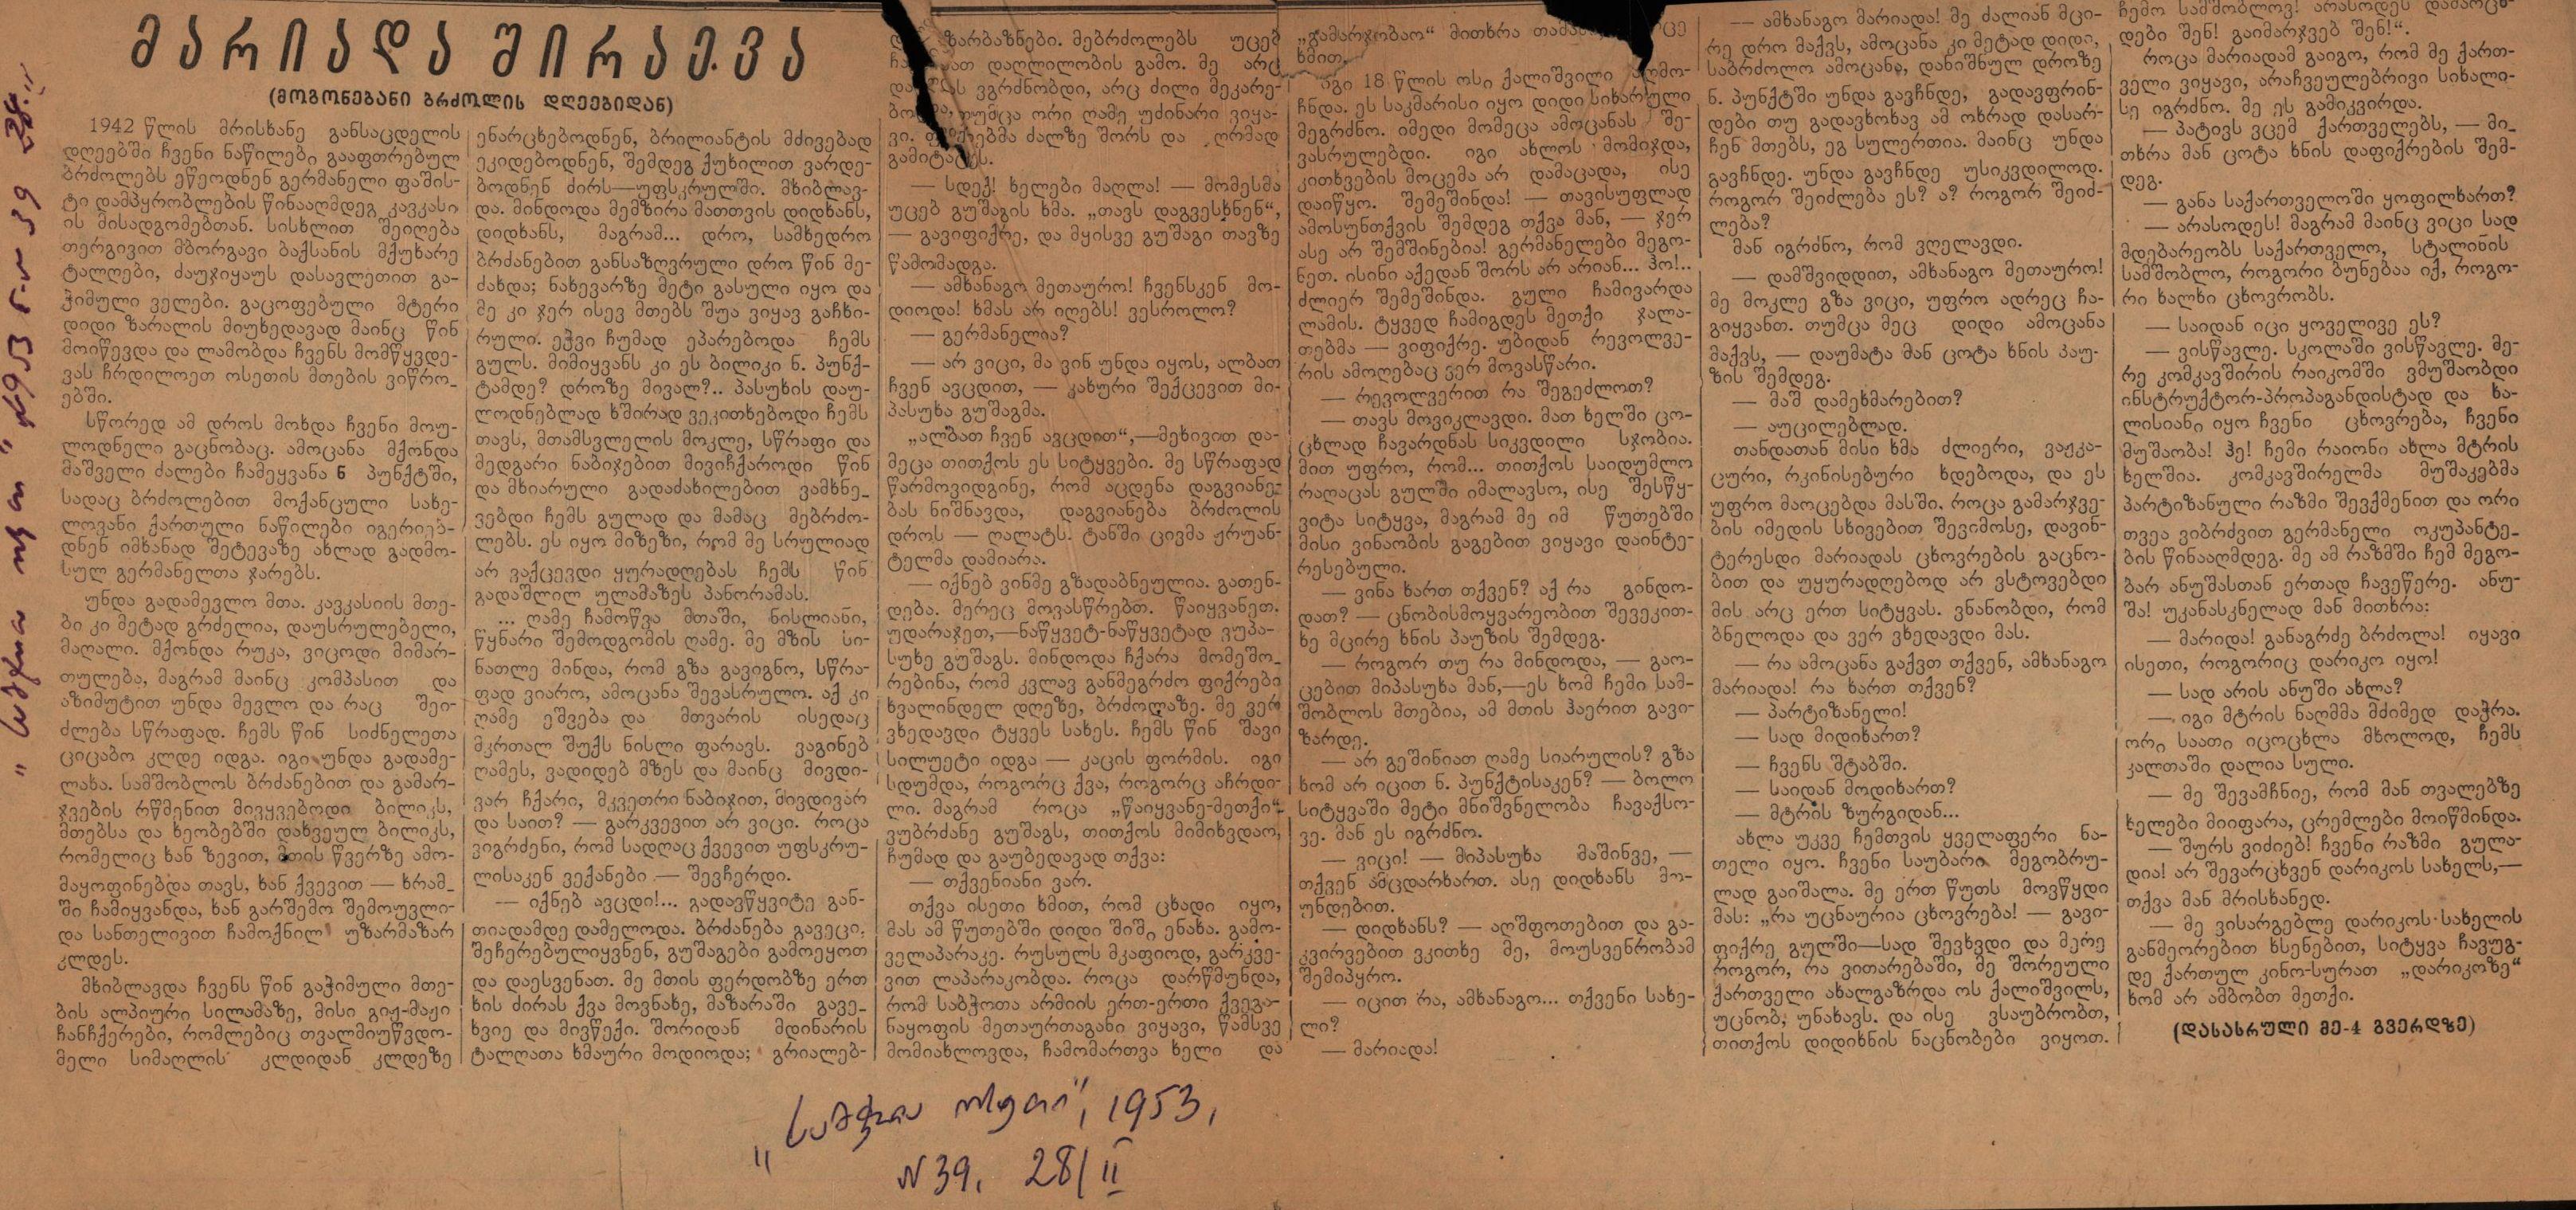 მარიადა შირაევა
(მოგონებანი ბრძოლის დღეებიდან)
1942 წლის მრისხანე განსაცდელის
დღეებში ჩვენი ნაწილები გააფთრებულ
ბრძოლებს ეწეოდნენ გერმანელი ფაშის-
ტი დამპყრობლების წინააღმდეგ კავკასი
ის მისადგომებთან. სისხლით შეიღება
თერგივით მბორგავი ბაქსანის მქუხარე
ტალღები, ძაუჯიყაუს დასავლეთით გა-
ჭიმული ველები. გაცოფებული მტერი
დიდი ზარალის მიუხედავად მაინც წინ
მოიწევდა და ლამობდა ჩვენს მომწყვდე-
ვას ჩრდილოეთ ოსეთის მთების ვიწრო-
ებში.
სწორედ ამ დროს მოხდა ჩვენი მოუ-
ლოდნელი გაცნობაც. ამოცანა მქონდა
მაშველი ძალები ჩამეყვანა ნ პუნქტში,
სადაც ბრძოლებით მოქანცული სახე-
ლოვანი ქართული ნაწილები იგერიებ-
დნენ იმხანად შეტევაზე ახლად გადმო-
სულ გერმანელთა ჯარებს.
უნდა გადამევლო მთა. კავკასიის მთე-
ბი კი მეტად გრძელია, დაუსრულებელი,
მაღალი. მქონდა რუკა, ვიცოდი მიმარ-
თულება, მაგრამ მაინც კომპასით და
აზიმუტით უნდა მევლო და რაც შეი-
ძლება სწრაფად. ჩემს წინ სიძნელეთა
ციცაბო კლდე იდგა. იგი უნდა გადამე-
ლახა. სამშობლოს ბრძანებით და გამარ-
ჯვების რწმენით მივყვებოდი ბილიკს,
მთებსა და ხეობებში დახვეულ ბილიკს,
რომელიც ხან ზევით, მთის წვერზე ამო-
მაყოფინებდა თავს, ხან ქვევით — ხრამ-
ში ჩამიყვანდა, ხან გარშემო შემოუვლი-
და სანთელივით ჩამოქნილ უზარმაზარ
კლდეს.
მხიბლავდა ჩვენს წინ გაჭიმული მთე-
ბის ალპიური სილამაზე, მისი გიჟ-მაჟი
ჩანჩქერები, რომლებიც თვალმიუწვდო-
მელი სიმაღლის კლდიდან კლდეზე
ენარცხებოდნენ, ბრილიანტის მძივებად
ეკიდებოდნენ, შემდეგ ქუხილით ვარდე-
ბოდნენ ძირს—უფსკრულში. მხიბლავ-
და. მინდოდა მემზირა მათთვის დიდხანს,
დიდხანს, მაგრამ... დრო, სამხედრო
ბრძანებით განსაზღვრული დრო წინ მე-
ძახდა; ნახევარზე მეტი გასული იყო და
მე კი ჯერ ისევ მთებს შუა ვიყავ გაჩხი-
რული. ეჭვი ჩუმად ეპარებოდა ჩემს
გულს. მიმიყვანს კი ეს ბილიკი ნ. პუნქ-
ტამდე? დროზე მივალ?.. პასუხის დაუ-
ლოდნებლად ხშირად ვეკითხებოდი ჩემს
თავს, მთამსვლელის მოკლე, სწრაფი და
მედგარი ნაბიჯებით მივიჩქაროდი წინ
და მხიარული გადაძახილებით ვამხნე-
ვებდი ჩემს გულად და მამაც მებრძო-
ლებს. ეს იყო მიზეზი, რომ მე სრულიად
არ ვაქცევდი ყურადღებას ჩემს წინ
გადაშლილ ულამაზეს პანორამას.
... ღამე ჩამოწვა მთაში, ნისლიანი,
წყნარი შემოდგომის ღამე. მე მზის სი-
ნათლე მინდა, რომ გზა გავიგნო, სწრა-
ფად ვიარო, ამოცანა შევასრულო. აქ კი
ღამე ეშვება და მთვარის ისედაც
მკრთალ შუქს ნისლი ფარავს. ვაგინებ
ღამეს, ვადიდებ მზეს და მაინც მივდი-
ვარ ჩქარი, მკვეთრი ნაბიჯით, მივდივარ
და საით? — გარკვევით არ ვიცი. როცა
ვიგრძენი, რომ სადღაც ქვევით უფსკრუ-
ლისაკენ ვექანები — შევჩერდი.
— იქნებ ავცდი!... გადავწყვიტე გან-
თიადამდე დამელოდა. ბრძანება გავეცი.
შეჩერებულიყვნენ, გუშაგები გამოეყოთ
და დაესვენათ. მე მთის ფერდობზე ერთ
ხის ძირას ქვა მოვნახე, მაზარაში გავე-
ხვიე და მივწექი. შორიდან მდინარის
ტალღათა ხმაური მოდიოდა; გრიალებ-
ზარბაზნები. მებრძოლებს უცებ
დაღლილობის გამო. მე არც
ვგრძნობდი, არც ძილი მეკარე-
თუმცა ორი ღამე უძინარი ვიყა-
ვი. ძალზე შორს და ღრმად
გამიტაცეს.
— სდექ! ხელები მაღლა! — მომესმა
უცებ გუშაგის ხმა. „თავს დაგვესხნენ“,
— გავიფიქრე, და მყისვე გუშაგი თავზე
წამომადგა.
— ამხანაგო მეთაურო! ჩვენსკენ მო-
დიოდა! ხმას არ იღებს! ვესროლო?
— გერმანელია?
— არ ვიცი, მა ვინ უნდა იყოს, ალბათ
ჩვენ ავცდით, — კახური შექცევით მი-
პასუხა გუშაგმა.
„ალბათ ჩვენ ავცდით“,—მეხივით და-
მეცა თითქოს ეს სიტყვები. მე სწრაფად
წარმოვიდგინე, რომ აცდენა დაგვიანე-
ბას ნიშნავდა, დაგვიანება ბრძოლის
დროს — ღალატს. ტანში ცივმა ჟრუან-
ტელმა დამიარა.
— იქნებ ვინმე გზადაბნეულია. გათენ-
დება. მერეც მოვასწრებთ. წაიყვანეთ.
უდარაჯეთ,—ნაწყვეტ-ნაწყვეტად ვუპა-
სუხე გუშაგს. მინდოდა ჩქარა მომეშო-
რებინა, რომ კვლავ განმეგრძო ფიქრები
ხვალინდელ დღეზე, ბრძოლაზე. მე ვერ
ვხედავდი ტყვეს სახეს. ჩემს წინ შავი
სილუეტი იდგა — კაცის ფორმის. იგი
სდუმდა, როგორც ქვა, როგორც აჩრდი-
ლი. მაგრამ როცა „წაიყვანე-მეთქი“
ვუბრძანე გუშაგს, თითქოს მიმიხვდაო,
ჩუმად და გაუბედავად თქვა:
— თქვენიანი ვარ.
თქვა ისეთი ხმით, რომ ცხადი იყო,
მას ამ წუთებში დიდი შიში ენახა. გამო-
ველაპარაკე. რუსულს მკაფიოდ, გარკვე-
ვით ლაპარაკობდა. როცა დარწმუნდა,
რომ საბჭოთა არმიის ერთ-ერთი ქვეგა-
ნაყოფის მეთაურთაგანი ვიყავი, წამსვე
მომიახლოვდა, ჩამომართვა ხელი და
„გამარჯობაო“ მითხრა
ხმით.
იგი 18 წლის ოსი ქალიშვილი აღმო-
ჩნდა. ეს საკმარისი იყო დიდი სიხარული
მეგრძნო. იმედი მომეცა ამოცანას შე-
ვასრულებდი. იგი ახლოს მომიჯდა,
კითხვების მოცემა არ დამაცადა, ისე
დაიწყო. შემეშინდა! — თავისუფლად
ამოსუნთქვის შემდეგ თქვა მან, — ჯერ
ასე არ შემშინებია! გერმანელები მეგო-
ნეთ. ისინი აქედან შორს არ არიან... ჰო!..
ძლიერ შემეშინდა. გული ჩამივარდა
ლამის. ტყვედ ჩამიგდეს მეთქი ჯალა-
თებმა — ვიფიქრე. უბიდან რევოლვე-
რის ამოღებაც ვერ მოვასწარი.
— რევოლვერით რა შეგეძლოთ?
— თავს მოვიკლავდი. მათ ხელში ცო-
ცხლად ჩავარდნას სიკვდილი სჯობია.
მით უფრო, რომ... თითქოს საიდუმლო
რაღაცას გულში იმალავსო, ისე შესწყ-
ვიტა სიტყვა, მაგრამ მე იმ წუთებში
მისი ვინაობის გაგებით ვიყავი დაინტე-
რესებული.
— ვინა ხართ თქვენ? აქ რა გინდო-
დათ? — ცნობისმოყვარეობით შევეკით-
ხე მცირე ხნის პაუზის შემდეგ.
— როგორ თუ რა მინდოდა, — გაო-
ცებით მიპასუხა მან,—ეს ხომ ჩემი სამ-
შობლოს მთებია, ამ მთის ჰაერით გავი-
ზარდე.
— არ გეშინიათ ღამე სიარულის? გზა
ხომ არ იცით ნ. პუნქტისაკენ? — ბოლო
სიტყვაში მეტი მნიშვნელობა ჩავაქსო-
ვე. მან ეს იგრძნო.
— ვიცი! — მიპასუხა მაშინვე, —
თქვენ ამცდარხართ. ასე დიდხანს მო-
უნდებით.
— დიდხანს? — აღშფოთებით და გა-
კვირვებით ვკითხე მე, მოუსვენრობამ
შემიპყრო.
— იცით რა, ამხანაგო... თქვენი სახე-
ლი?
— მარიადა!
— ამხანაგო მარიადა! მე ძალიან მცი-
რე დრო მაქვს, ამოცანა კი მეტად დიდი,
საბრძოლო ამოცანა, დანიშნულ დროზე
ნ. პუნქტში უნდა გავჩნდე, გადავფრინ-
დები თუ გადავხოხავ ამ ოხრად დასარ-
ჩენ მთებს, ეგ სულერთია. მაინც უნდა
გავჩნდე. უნდა გავჩნდე უსიკვდილოდ.
როგორ შეიძლება ეს? ა? როგორ შეიძ-
ლება?
მან იგრძნო, რომ ვღელავდი.
— დამშვიდდით, ამხანაგო მეთაურო!
მე მოკლე გზა ვიცი, უფრო ადრეც ჩა-
გიყვანთ. თუმცა მეც დიდი ამოცანა
მაქვს, — დაუმატა მან ცოტა ხნის პაუ-
ზის შემდეგ.
— მაშ დამეხმარებით?
— აუცილებლად.
თანდათან მისი ხმა ძლიერი, ვაჟკა-
ცური, რკინისებური ხდებოდა, და ეს
უფრო მაოცებდა მასში. როცა გამარჯვე-
ბის იმედის სხივებით შევიმოსე, დავინ-
ტერესდი მარიადას ცხოვრების გაცნო-
ბით და უყურადღებოდ არ ვსტოვებდი
მის არც ერთ სიტყვას. ვნანობდი, რომ
ბნელოდა და ვერ ვხედავდი მას.
— რა ამოცანა გაქვთ თქვენ, ამხანაგო
მარიადა! რა ხართ თქვენ?
— პარტიზანელი!
— სად მიდიხართ?
— ჩვენს შტაბში.
— საიდან მოდიხართ?
— მტრის ზურგიდან...
ახლა უკვე ჩემთვის ყველაფერი ნა-
თელი იყო. ჩვენი საუბარი მეგობრუ-
ლად გაიშალა. მე ერთ წუთს მოვწყდი
მას: „რა უცნაურია ცხოვრება! — გავი-
ფიქრე გულში—სად შევხვდი და მერე
როგორ, რა ვითარებაში, მე შორეული
ქართველი ახალგაზრდა ოს ქალიშვილს,
უცნობ, უნახავს. და ისე ვსაუბრობთ,
თითქოს დიდიხნის ნაცნობები ვიყოთ.
ჩემო სამშობლოვ! არასოდეს
დები შენ! გაიმარჯვებ შენ!“.
როცა მარიადამ გაიგო, რომ მე ქართ-
ველი ვიყავი, არაჩვეულებრივი სიხალი-
სე იგრძნო. მე ეს გამიკვირდა.
— პატივს ვცემ ქართველებს, — მი-
თხრა მან ცოტა ხნის დაფიქრების შემ-
დეგ.
— განა საქართველოში ყოფილხართ?
— არასოდეს! მაგრამ მაინც ვიცი სად
მდებარეობს საქართველო, სტალინის
სამშობლო, როგორი ბუნებაა იქ, როგო-
რი ხალხი ცხოვრობს.
— საიდან იცი ყოველივე ეს?
— ვისწავლე. სკოლაში ვისწავლე. მე-
რე კომკავშირის რაიკომში ვმუშაობდი
ინსტრუქტორ-პროპაგანდისტად და ხა-
ლისიანი იყო ჩვენი ცხოვრება, ჩვენი
მუშაობა! ჰე! ჩემი რაიონი ახლა მტრის
ხელშია. კომკავშირელმა მუშაკებმა
პარტიზანული რაზმი შევქმენით და ორი
თვეა ვიბრძვით გერმანელი ოკუპანტე-
ბის წინააღმდეგ. მე ამ რაზმში ჩემ მეგო-
ბარ ანუშასთან ერთად ჩავეწერე. ანუ-
შა! უკანასკნელად მან მითხრა:
— მარიდა! განაგრძე ბრძოლა! იყავი
ისეთი, როგორიც დარიკო იყო!
— სად არის ანუში ახლა?
— იგი მტრის ნაღმმა მძიმედ დაჭრა.
ორი საათი იცოცხლა მხოლოდ, ჩემს
კალთაში დალია სული.
— მე შევამჩნიე, რომ მან თვალებზე
ხელები მიიფარა, ცრემლები მოიწმინდა.
— შურს ვიძიებ! ჩვენი რაზმი გულა-
დია! არ შევარცხვენ დარიკოს სახელს,—
თქვა მან მრისხანედ.
— მე ვისარგებლე დარიკოს სახელის
განმეორებით ხსენებით, სიტყვა ჩავუგ-
დე ქართულ კინო-სურათ „დარიკოზე“
ხომ არ ამბობთ მეთქი.
(დასასრული მე-4 გვერდზე)
1953,
N 39, 28/II